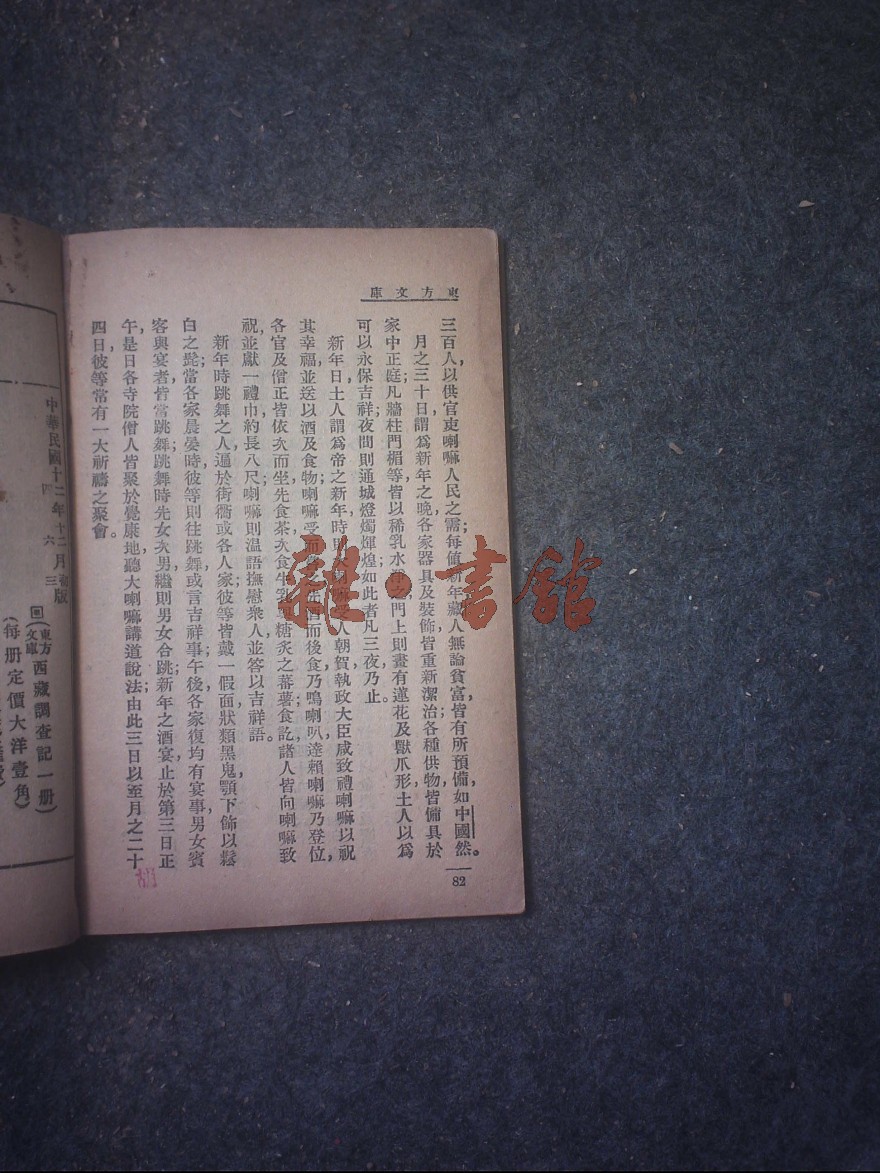 東方文庫
三百人，以供官吏喇嘛人民之需；每値新年，藏人無論貧富，皆有所預備，如中國然。
月之三十日，謂爲新年之晚，各家器具及裝飾，皆重新潔治，各種供物，皆備具於
家中正庭；凡牆柱門楣等，皆以稀乳水淨之；門上則畫有蓮花及獸爪形，土人以爲
可以永保吉祥；夜間則通城燈燭煇煌，如此者凡三夜乃止。
新年日土人謂爲帝之新年，時則大喇嘛受人朝賀，執政大臣咸致禮喇嘛，以祝
其幸福，並送以酒及食物，喇嘛受而先酒而後食，乃鳴喇叭，達賴喇嘛乃登位，
各官及僧正皆依次而坐，先食茶，次食牛乳糖炙之蕃薯，食訖，諸人皆向喇嘛致
祝，並獻一禮巾，約長八尺，喇嘛則溫語撫慰衆人，並答以吉祥語。
新年時跳舞之人，遍於街衢，或各人家，彼等皆戴一假面，狀類黑鬼，顎下飾以鬆
白之髭；當各家晨晏時，彼等則往跳舞，或言吉祥事；午後各家復均有宴事，男女賓
客與宴者皆當跳舞，跳舞時先女次男，繼則男女合跳；新年之酒宴，止於第三日正
午，是日各寺院僧人，皆聚於覺康地，聽大喇嘛講道說法；由此三日以至月之二十
四日，彼等常有一大祈禱之聚會。
82
中華民國十二年十二月初版
四六三
東方文庫
西藏調查記一册
(每册定價大洋壹角)
雜·書館